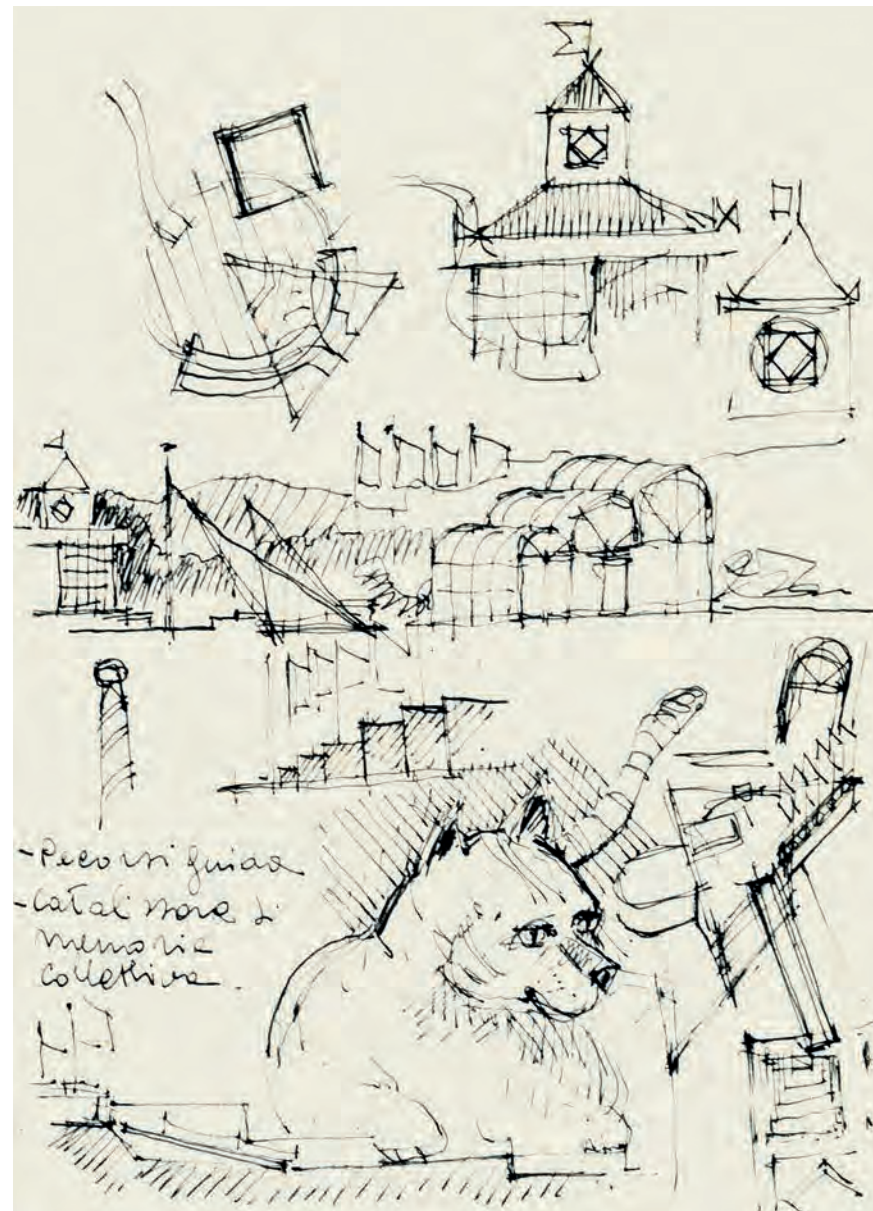 - Percorsi guida
- Catalizzatore di
memoria
collettiva.